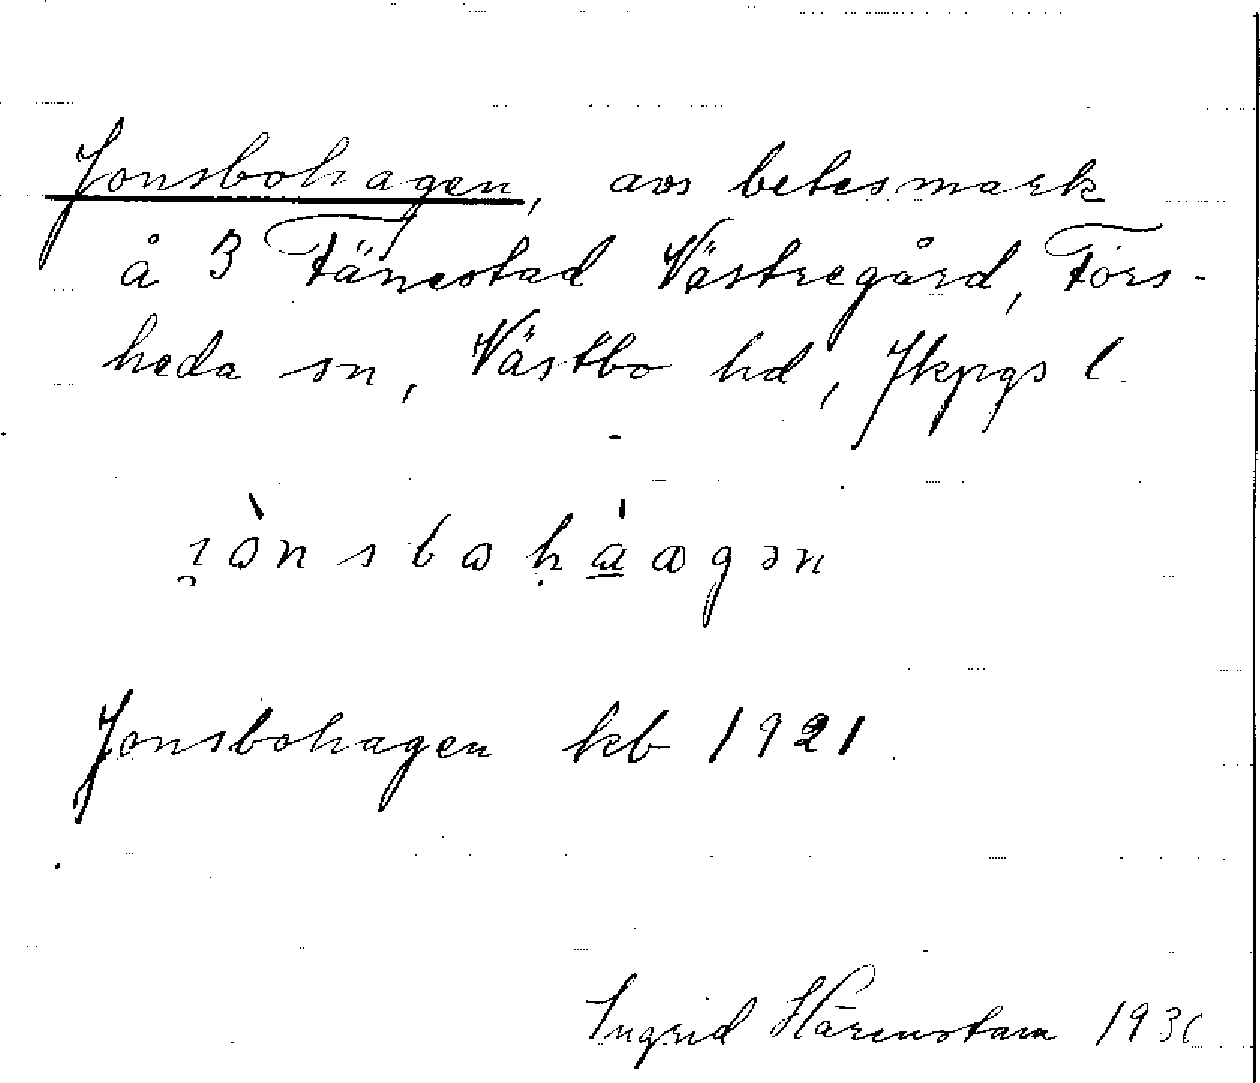 Jonsbohagen, avs betesmark
å 3 Fänestad Västregård, Fors-
heda sn, Västbo hd, Jkpgs l.
Jonsbohagen kb 1921
Ingrid Härenstam